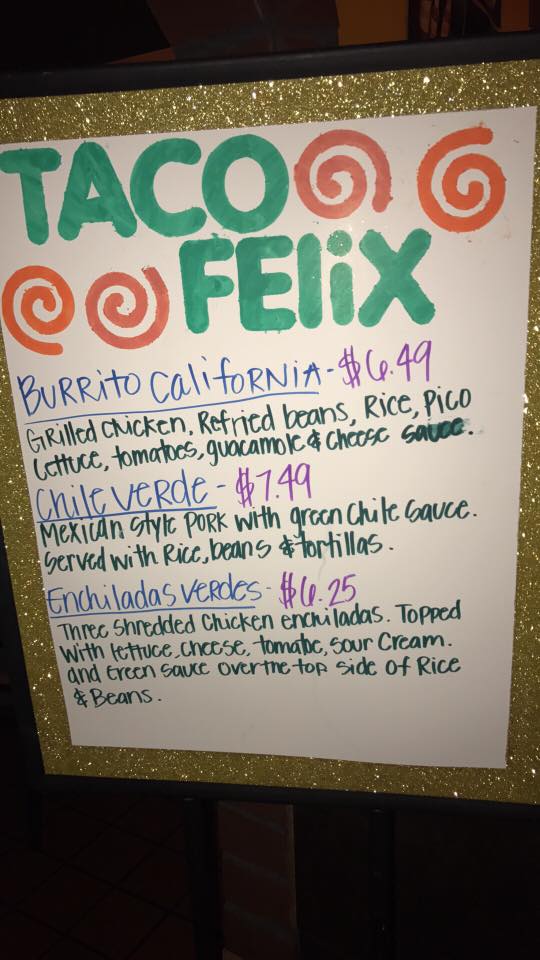 TACO
FELiX
BURRITO CALIFORNIA - $6.49
GRilled chicken, Refried beans, Rice, Pico
Lettuce, tomatoes, guacamole & cheese sauce.
Chile VERDE - $7.49
Mexican style PORK with green chile sauce.
Served with Rice, beans & tortillas.
Enchiladas VERDES - $6.25
Three shredded Chicken enchiladas. Topped
With lettuce, cheese, tomatoe, sour Cream.
and Green sauce over the top side of Rice
& Beans.